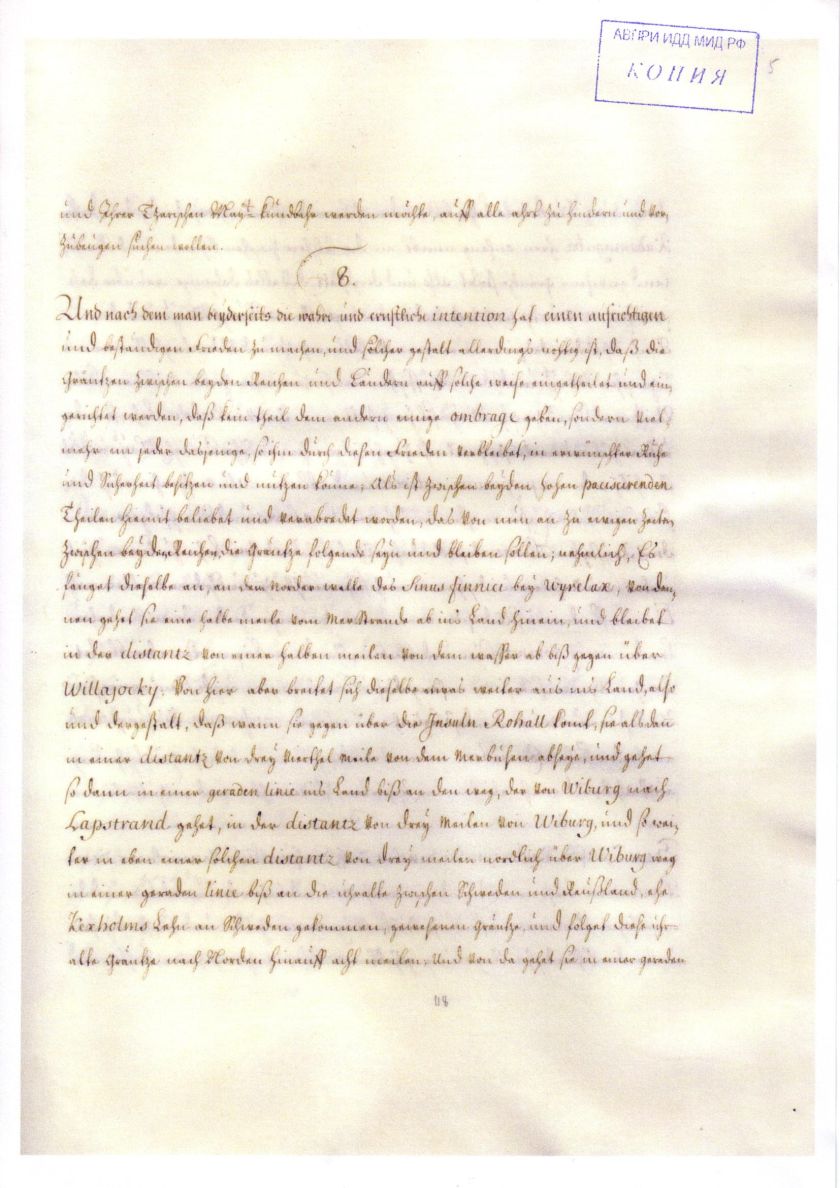 АВПРИ ИДД МИД РФ
КОПИЯ
5
und Ihrer Tzarischen Mayt. kundbahr werden möchte, auff alle ahrt zu hindern und vor-
zubeugen suchen wollen.
8.
Und nach dem man beyderseits die wahre und ernstliche intention hat einen aufrichtigen
und beständigen Frieden zu machen, und solcher gestalt allerdings nöhtig ist, daß die
Gräntzen zwischen beyden Reichen und Ländern auff solche weise eingetheilet und ein-
gerichtet werden, daß kein theil dem andern einige ombrage geben, sondern viel-
mehr ein jeder dasjenige, so ihm durch diesen Frieden verbleibet, in erwünschter Ruhe
und Sicherheit besitzen und nutzen könne; Als ist zwischen beyden hohen paciscirenden
Theilen hiemit beliebet und verabredet worden, das von nun an zu ewigen Zeiten
zwischen beyden Reichen, die Gräntze folgende seyn und bleiben sollen; nehmlich, Es
fänget dieselbe an, an dem Norder walle des Sinus finnici bey Wyrelax, von dan-
nen gehet sie eine halbe meile vom Mer Strande ab ins Land hinein, und bleibet
in der distantz von einer halben meilen von dem wasser ab biß gegen über
Willajocky. Von hier aber breitet sich dieselbe etwas weiter aus ins Land, also
und dergestalt, daß wann sie gegen über die Insuln Rohäll komt, sie alsden
in einer distantz von drey Vierthel Meile von dem Merbusen abseye, und gehet
so dann in einer geraden linie ins Land biß an den weg, der von Wiburg nach
Lapstrand gehet, in der distantz von drey Meilen von Wiburg, und so wei-
ter in eben einer solchen distantz von drey meilen nordlich über Wiburg weg
in einer geraden linie biß an die uhralte zwischen Schweden und Reußland, ehe
Kexholms Lehn an Schweden gekommen, gewesenen Gräntze, und folget diese uhr-
alte Gräntze nach Norden hinauff acht meilen, Und von da gehet sie in einer geraden
118